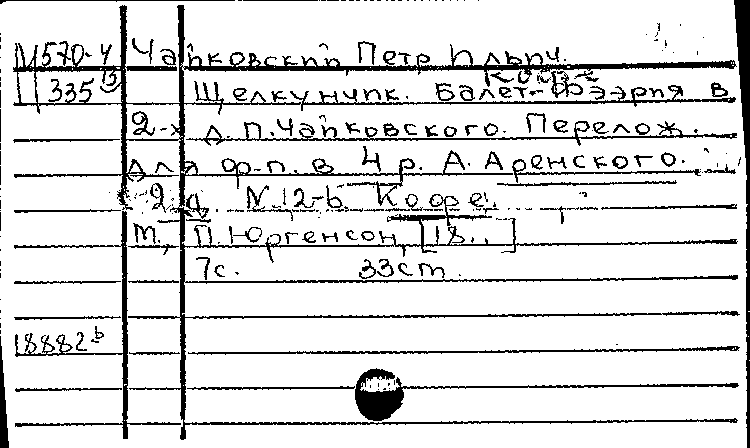 М 570-4 Чайковский, Петр Ильич.
Кофе
335 Щелкунчик. Балет-Феэрия в
2-х д. П. Чайковского. Перелож.
для ф-п. в 4 р. А. Аренского.
2 д. N. 12-b Кофе.
М., П. Юргенсон, [18..]
7 с. 33 cm.
18882 b